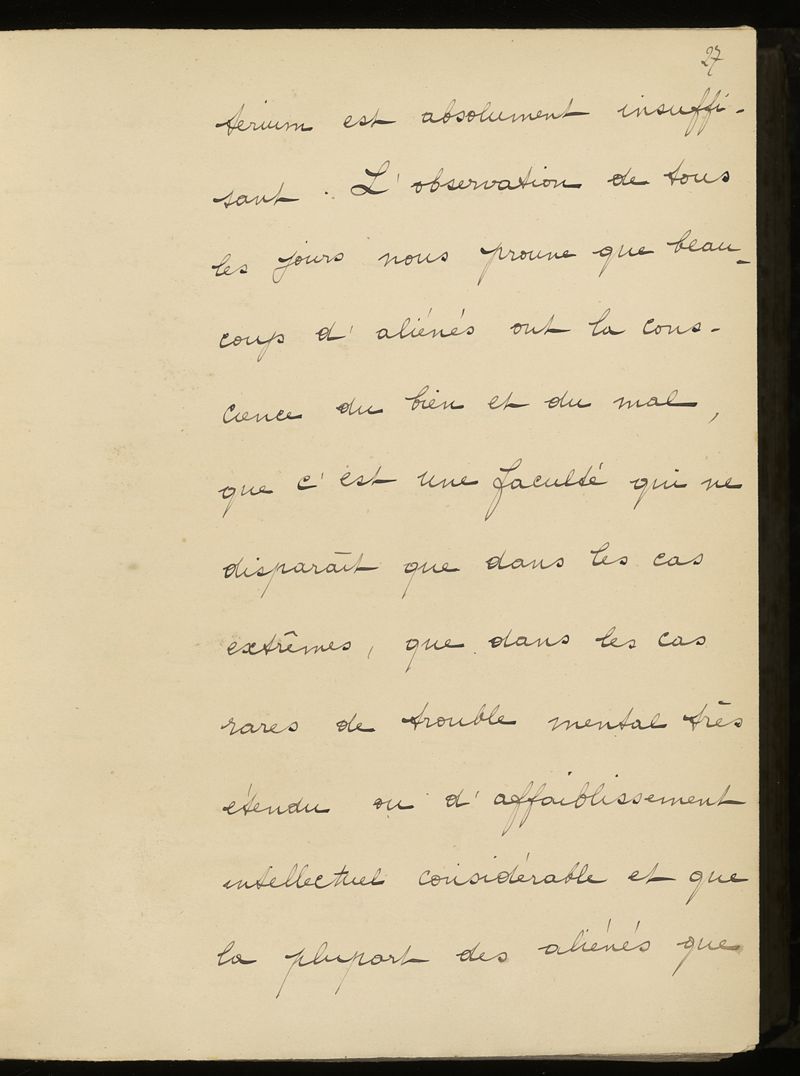 27
terium est absolument insuffi-
sant. L'observation de tous
les jours nous prouve que beau-
coup d'aliénés ont la cons-
cience du bien et du mal,
que c'est une faculté qui ne
disparaît que dans les cas
extrêmes, que dans les cas
rares de trouble mental très
étendu ou d'affaiblissement
intellectuel considérable et que
la plupart des aliénés que